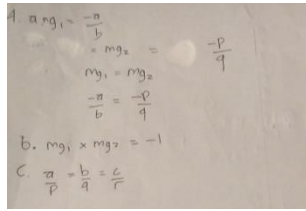 4. a. mg₁ = -a/b
= mg₂ = -p/q
mg₁ = mg₂
-a/b = -p/q
b. mg₁ × mg₂ = -1
c. a/p = b/q = c/r